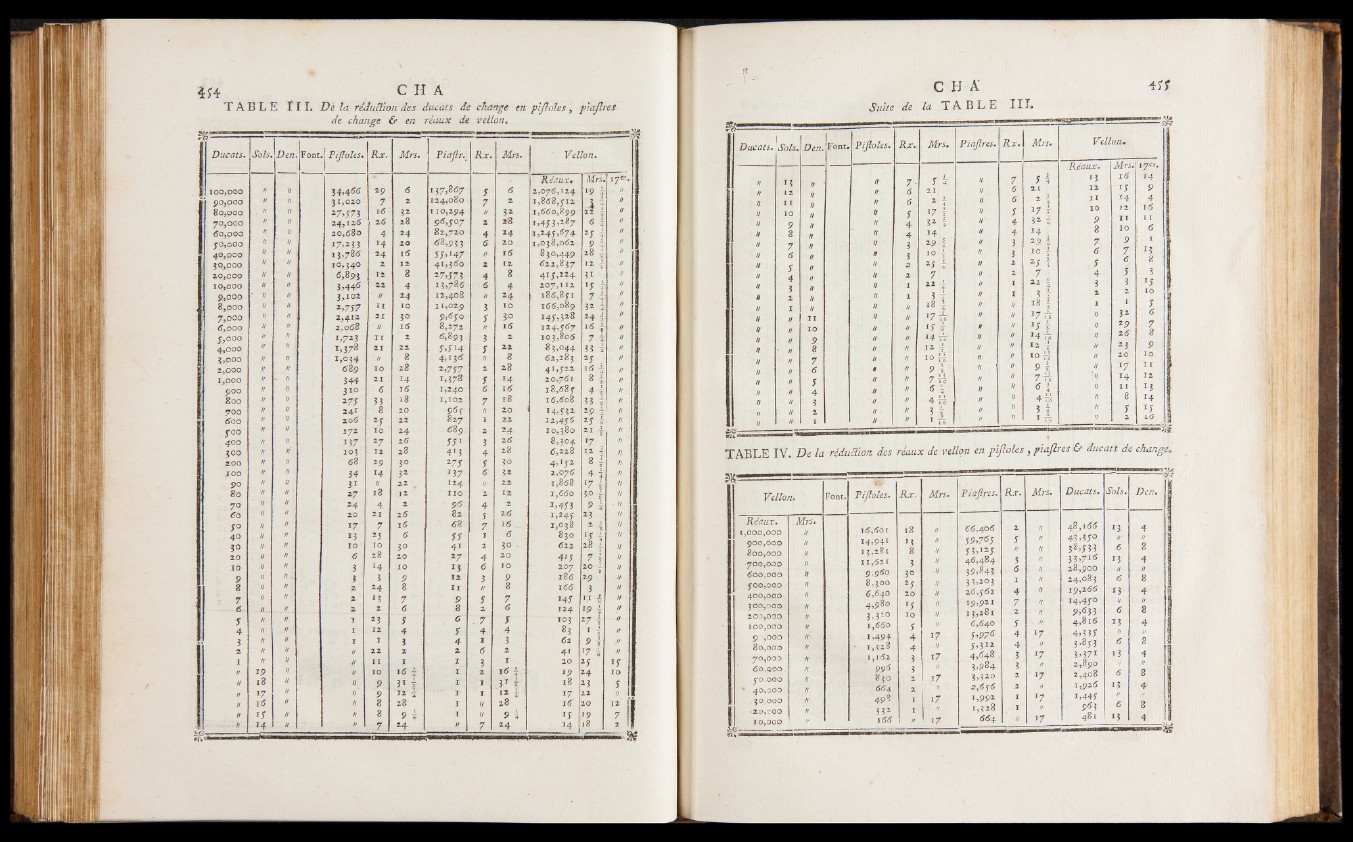 454 CHA
TABLE III. De la réduction des ducats de change en pistoles, piastres
de change & en réaux de vellon.
Ducats. Sols. Den. Font. Pistoles. Rx. Mrs. Piastr. Rx. Mrs. Vellon.
Réaux. Mrs. 17es.
100,000 " " 34,466 29 6 137,867 5 6 2,076,124 19
90,000 " " 31,020 7 2 124,080 7 2 1,868,512
80,000 " " 27,573 16 32 110,294 " 32 1,660,899
70,000 " " 24,126 26 28 96,507 2 28 1,453,287 6
60,000 " " 20,680 4 24 82,720 4 24 1,245,674 25
50,000 " " 17,233 14 20 68,933 6 20 1,038,062 9
40,000 " " 13,786 24 16 55,147 " 16 830,449 28
30,000 " " 10,340 2 12 41,360 2 12 622,837 12
20,000 " " 6,893 12 8 27,573 4 8 415,224 31
10,000 " " 3,446 22 4 13,786 6 4 207,112 15
9,000 " " 3,102 " 24 12,408 " 24 186,851 7
8,000 " " 2,757 11 10 11,029 3 10 166,089 32
7,000 " " 2,412 21 30 9,650 5 30 145,328 24
6,000 " " 2,068 " 16 8,272 " 16 124,567 16
5,000 " " 1,723 11 2 6,893 3 2 103,806 7
4,000 " " 1,378 21 22 5,514 5 22 83,044 33
3,000 " " 1,034 " 8 4,136 " 8 62,283 25
2,000 " " 689 10 28 2,757 2 28 41,522 16
1,000 " " 344 21 14 1,378 5 14 20,761 8
900 " " 310 6 16 1,240 6 16 18,685 4
800 " " 275 33 18 1,102 7 18 16,608 33
700 " " 241 8 20 965 " 20 14,532 29
600 " " 206 25 22 827 1 22 12,456 25
500 " " 172 10 24 689 2 24 10,380 21
400 " " 137 27 26 551 3 26 8,304 17
300 " " 103 12 28 413 4 28 6,228 12
200 " " 68 29 30 275 5 30 4,152 8
100 " " 34 14 32 137 6 32 2,076 4
90 " " 31 " 22 124 " 22 1,868 17
80 " " 27 18 12 110 2 12 1,660 30
70 " " 24 4 2 96 4 2 1,453 9
60 " " 20 21 26 82 5 26 1,245 23
50 " " 17 7 16 68 7 16 1,038 2
40 " " 13 25 6 55 1 6 830 15
30 " " 10 10 30 41 2 30 622 28
20 " " 6 28 20 27 4 20 415 7
10 " " 3 14 10 13 6 10 207 20
9 " " 3 3 9 12 3 9 186 29
8 " " 2 24 8 11 " 8 166 3
7 " " 2 13 7 9 5 7 145 11
6 " " 2 2 6 8 2 6 124 19
5 " " 1 23 5 6 7 5 103 27
4 " " 1 12 4 5 4 4 83 1
3 " " 1 1 3 4 1 3 62 9
2 " " " 22 2 2 6 2 41 17
1 " " " 11 1 1 3 1 20 25 15
" 19 " " 10 16 1 2 16 19 24 10
" 18 " " 9 31 1 1 31 18 23 5
" 17 " " 9 12 1 1 12 17 22 "
" 16 " " 8 28 1 " 28 16 20 12
" 15 " " 8 9 1 " 9 15 19 7
" 14 " " 7 24 " 7 24 14 18 2
CHA 455
Suite de la TABLE III.
Ducats. Sols. Den. Font. Pistoles. Rx. Mrs. Piastres. Rx. Mrs. Vellon.
Réaux. Mrs. 17es.
" 13 " " 7 5 " 7 5 13 16 14
" 12 " " 6 21 " 6 21 12 15 9
" 11 " " 6 2 " 6 2 11 14 4
" 10 " " 5 17 " 5 17 10 12 16
" 9 " " 4 32 " 4 32 9 11 11
" 8 " " 4 14 " 4 14 8 10 6
" 7 " " 3 29 " 3 29 7 9 1
" 6 " " 3 10 " 3 10 6 7 13
" 5 " " 2 25 " 2 25 5 6 8
" 4 " " 2 7 " 2 7 4 5 3
" 3 " " 1 22 " 1 22 3 3 15
" 2 " " 1 3 " 1 3 2 2 10
" 1 " " " 18 " " 18 1 1 5
" " 11 " " 17 " " 17 " 32 6
" " 10 " " 15 " " 15 " 29 7
" " 9 " " 14 " " 14 " 26 8
" " 8 " " 12 " " 12 " 23 9
" " 7 " " 10 " " 10 " 20 10
" " 6 " " 9 " " 9 " 17 11
" " 5 " " 7 " " 7 " 14 12
" " 4 " " 6 " " 6 " 11 13
" " 3 " " 4 " " 4 " 8 14
" " 2 " " 3 " " 3 " 5 15
" " 1 " " 1 " " 1 " 2 16
TABLE IV. De la réduction des réaux de vellon en pistoles, piastres & ducats de change.
Vellon. Font. Pistoles. Rx. Mrs. Piastres. Rx. Mrs. Ducats. Sols. Den.
Réaux. Mrs.
1,000,000 " 16,601 18 " 66,406 2 " 48,166 13 4
900,000 " 14,941 13 " 59,765 5 " 43,350 " "
800,000 " 13,281 8 " 53,125 " " 38,533 6 8
700,000 " 11,621 3 " 46,484 3 " 33,716 13 4
600,000 " 9,960 30 " 39,843 6 " 28,900 " "
500,000 " 8,300 25 " 33,203 1 " 24,083 6 8
400,000 " 6,640 20 " 26,562 4 " 19,266 13 4
300,000 " 4,980 15 " 19,921 7 " 14,450 " "
200,000 " 3,320 10 " 13,281 2 " 9,633 6 8
100,000 " 1,660 5 " 6,640 5 " 4,816 13 4
9 ,000 " 1,494 4 17 5,976 4 17 4,335 " "
80,000 " 1,328 4 " 5,312 4 " 3,853 6 8
70,000 " 1,162 3 17 4,648 3 17 3,371 13 4
60,000 " 996 3 " 3,984 3 " 2,890 " "
50,000 " 830 2 17 3,320 2 17 2,408 6 8
40,000 " 664 2 " 2,656 2 " 1,926 13 4
30,000 " 498 1 17 1,992 1 17 1,445 " "
20,000 " 332 1 " 1,328 1 " 963 6 8
10,000 " 166 " 17 664 " 17 481 13 4